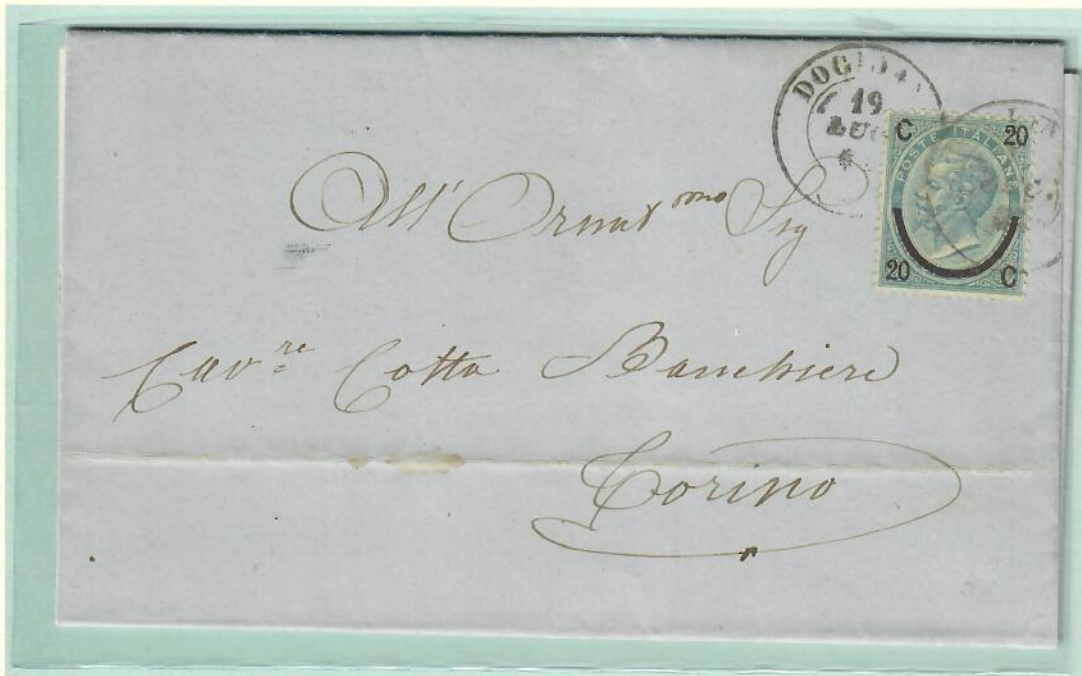 19
LUG
C 20
POSTE ITALIANE
20 C
All' Ornat mo Sig
Cav re Cotta Banchiere
Torino